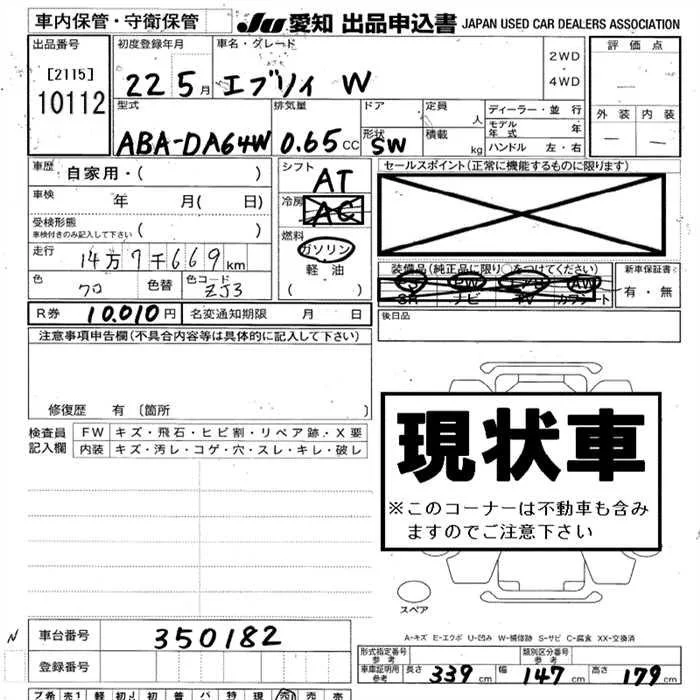 車内保管・守衛保管 JU 愛知 出品申込書 JAPAN USED CAR DEALERS ASSOCIATION
出品番号 [2115] 10112
初度登録年月 22 5月
車名・グレード エブリィ W
2WD
4WD
評価点 —
外装 — 内装 —
型式 ABA-DA64W
排気量 0.65 CC
ドア
形状 SW
定員 人
積載 kg
ディーラー・並行
モデル年式 年
ハンドル 左・右
車歴 自家用・( )
車検 年 月( 日)
受検形態 ( )
車検付きのみ記入して下さい
走行 14万7千669km
色 クロ 色替 色コード ZJ3
シフト AT
冷房 AC
燃料 ガソリン
軽油
( )
セールスポイント(正常に機能するものに限ります)
装備品(純正品に限り○をつけてください)
SR ナビ TV カワシート
PS PW AW
新車保証書
有・無
R券 10,010円 名変通知期限 月 日
後日品
注意事項申告欄(不具合内容等は具体的に記入して下さい)
修復歴 有 〔箇所 〕
検査員記入欄
FW キズ・飛石・ヒビ割・リペア跡・X要
内装 キズ・汚レ・コゲ・穴・スレ・キレ・破レ
現状車
※このコーナーは不動車も含み
ますのでご注意下さい
スペア
A-キズ E-エクボ U-凹み W-補修跡 S-サビ C-腐食 XX-交換済
N 車台番号 350182
登録番号
形式指定番号 参考
類別区分番号 参考
車庫証明用 参考 長さ 339 cm 幅 147 cm 高さ 179 cm